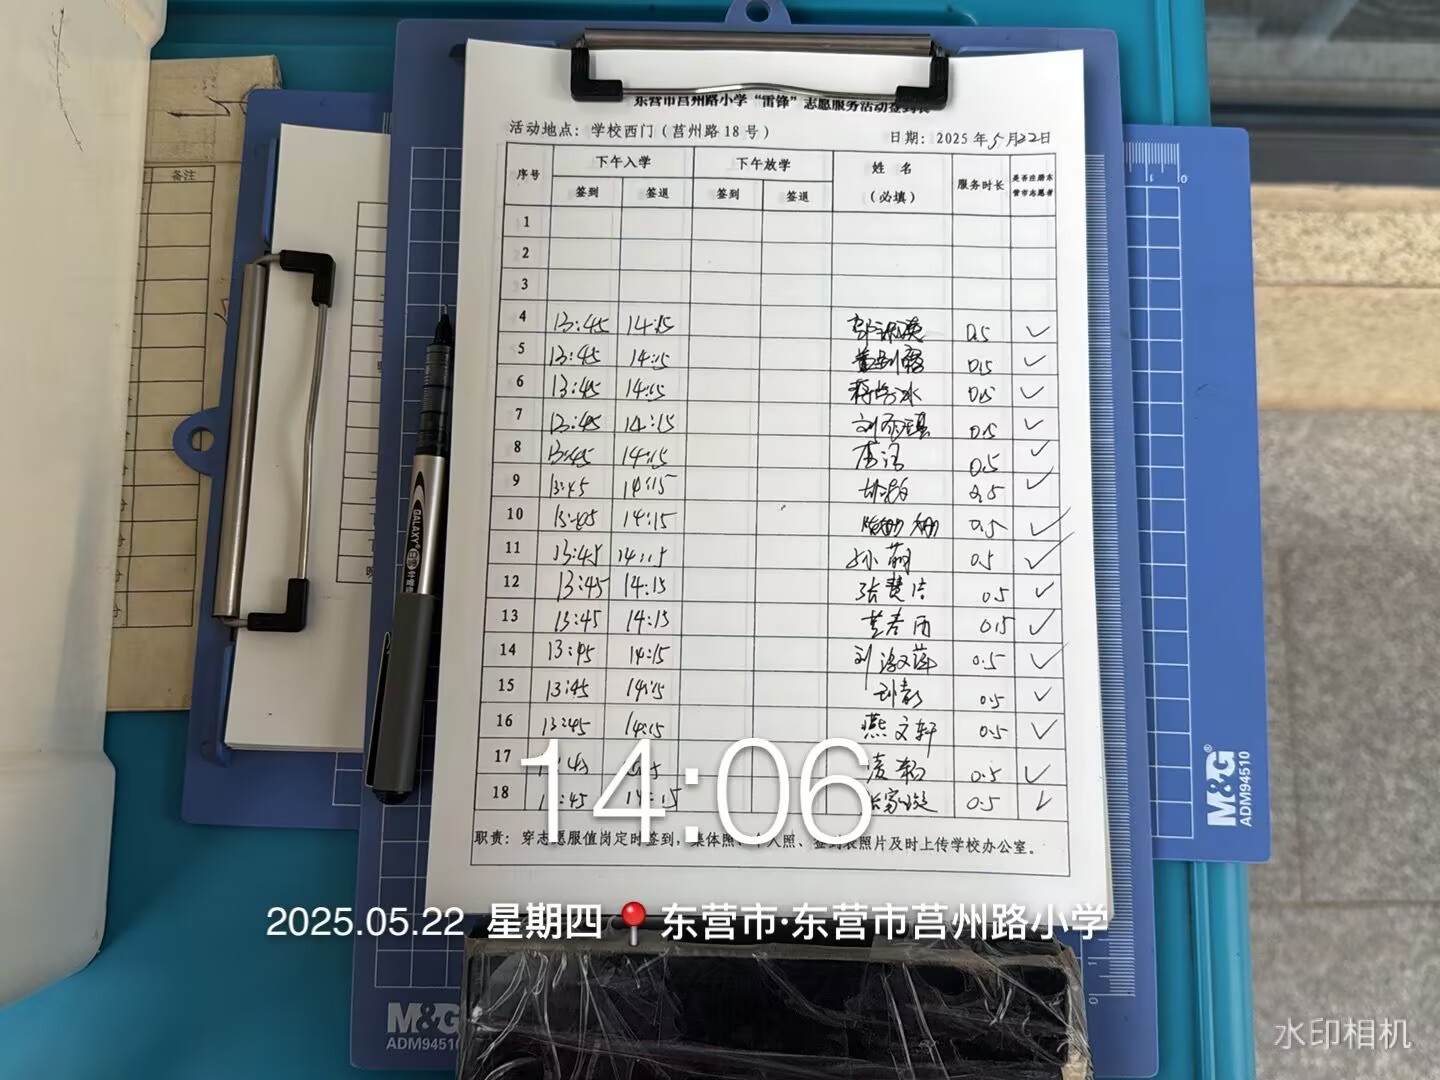 东营市莒州路小学“雷锋”志愿服务活动签到表
活动地点：学校西门（莒州路18号） 日期：2025年5月22日
序号 下午入学 下午放学 姓名（必填） 服务时长 是否注册东营市志愿者
签到 签退 签到 签退
1
2
3
4 13:45 14:15 0.5 ✓
5 13:45 14:15 0.5 ✓
6 13:45 14:15 0.5 ✓
7 13:45 14:15 0.5 ✓
8 13:45 14:15 0.5 ✓
9 13:45 14:15 0.5 ✓
10 13:45 14:15 0.5 ✓
11 13:45 14:15 孙萌 0.5 ✓
12 13:45 14:15 张慧洁 0.5 ✓
13 13:45 14:15 0.5 ✓
14 13:45 14:15 0.5 ✓
15 13:45 14:15 0.5 ✓
16 13:45 14:15 燕文轩 0.5 ✓
17 0.5 ✓
18 14:15 0.5 ✓
职责：穿志愿服值岗定时签到，集体照、个人照、签到表照片及时上传学校办公室。
14:06
2025.05.22 星期四 东营市·东营市莒州路小学
水印相机
备注
GALAXY
M&G
ADM94510
M&G
ADM94510